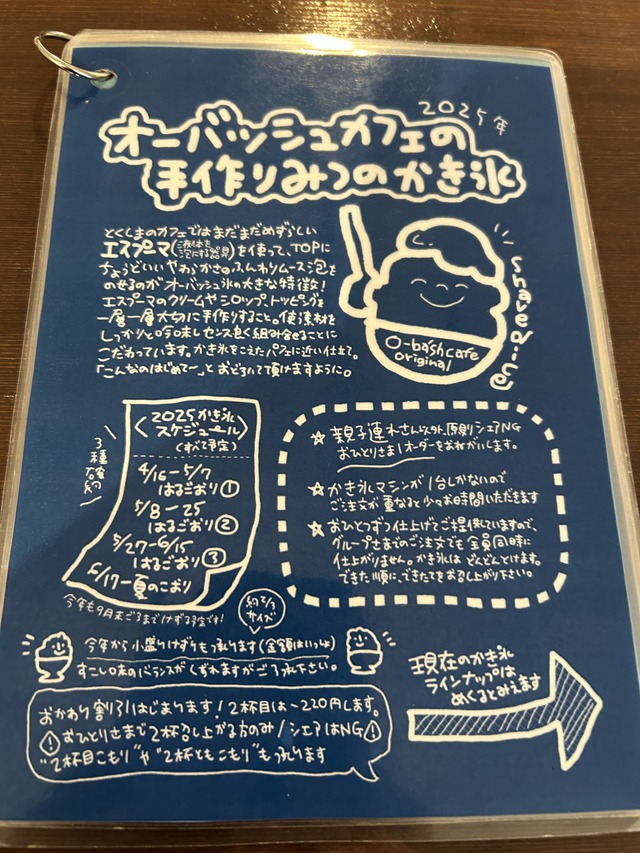 2025年
オーバッシュカフェの
手作りみつのかき氷
とくしまのカフェではまだまだめずらしい
エスプーマ(液体を泡にする器具)を使って、TOPに
ちょうどいいやわらかさのふんわりムース泡を
のせるのがオーバッシュ氷の大きな特徴!
エスプーマのクリームやシロップ、トッピングを
一層一層大切に手作りすること。使う素材を
しっかりと吟味しセンス良く組み合せることに
こだわっています。かき氷をこえたパフェに近い仕立て。
「こんなのはじめて〜」とおどろいて頂けますように。
shaved-ice
O-bashcafe
original
3種確約
2025かき氷
スケジュール
(すべて予定)
4/16-5/7
はるごおり①
5/8-25
はるごおり②
5/27-6/15
はるごおり③
6/17-夏のこおり
今年も9月末ごろまでけずる予定です!
☆親子連れさん以外、原則シェアNG
おひとりさま1オーダーをおねがいします。
☆かき氷マシンが1台しかないので
ご注文が重なると少々お時間いただきます
☆おひとつずつ仕上げてご提供していますので、
グループさまでのご注文でも全員同時に
仕上がりません。かき氷はどんどんとけます。
できた順に、できたてをお召し上がり下さい。
約2/3
サイズ
今年から小盛りけずりも承ります(金額はいっしょ)
すこし味のバランスがくずれますがご了承下さい。
おかわり割引はじまります!2杯目は-220円します。
おひとりさまで2杯召し上がる方のみ/シェアはNG
"2杯目こもり"や"2杯ともこもり"も承ります
現在のかき氷
ラインナップは
めくるとみえます